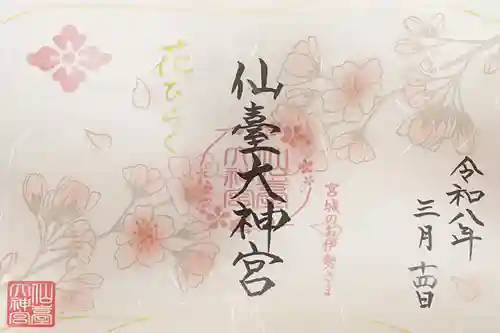 令和八年
三月十四日
仙臺大神宮
宮城のお伊勢さま
花ひらく
仙臺
大神宮